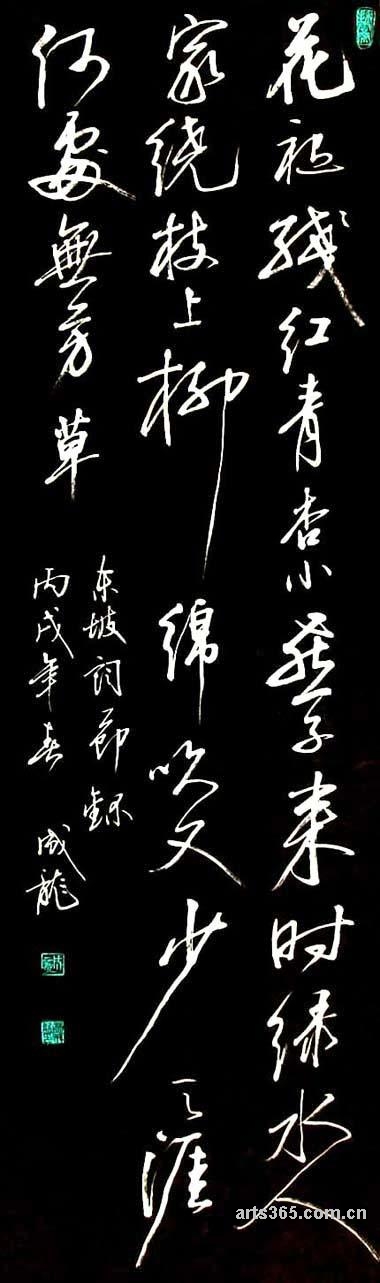 花褪残红青杏小燕子来时绿水人
家绕枝上柳绵吹又少天涯
何處無芳草
东坡词节录
丙戌年春 成龍
arts365.com.cn